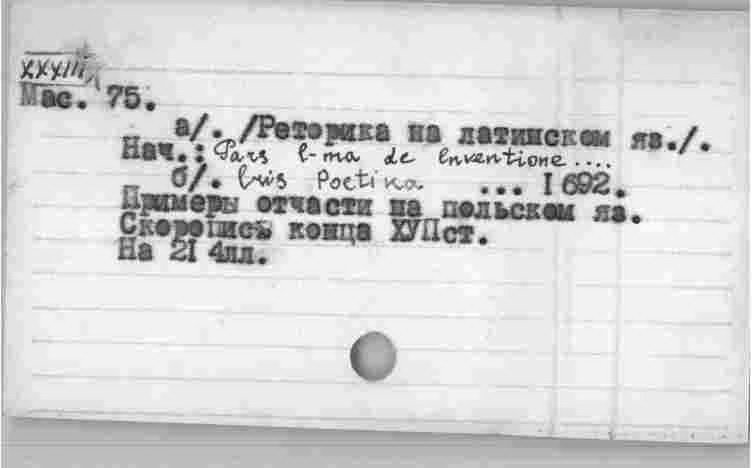 XXXIII
Мас. 75.
а/. /Реторика на латинском яз./.
Нач.: Pars l-ma de Enventione....
б/. Eris Poetika ... I692.
Примеры отчасти на польском яз.
Скоропись конца ХУПст.
На 2I4лл.